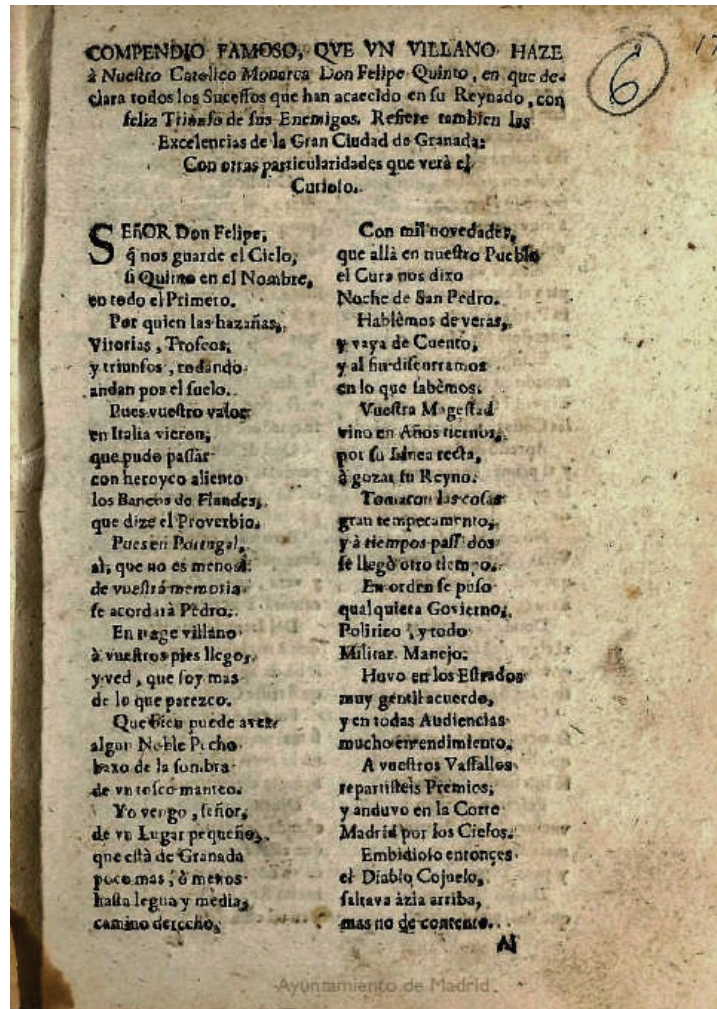 COMPENDIO FAMOSO, QVE VN VILLANO HAZE
à Nuestro Catolico Monarca Don Felipe Quinto, en que de-
clara todos los Sucessos que han acaecido en su Reynado, con
feliz Triunfo de sus Enemigos. Refiere tambien las
Excelencias de la Gran Ciudad de Granada:
Con otras particularidades que verà el
Curioso.
6
17
SEñOR Don Felipe,
q̃ nos guarde el Cielo,
si Quinto en el Nombre,
en todo el Primero.
Por quien las hazañas,
Vitorias, Trofeos,
y triunfos, rodando
andan por el suelo.
Pues vuestro valor
en Italia vieron,
que pudo passàr
con heroyco aliento
los Bancos de Flandes,
que dize el Proverbio.
Pues en Portugal,
al, que no es menos:
de vuestra memoria
se acordarà Pedro.
En trage villano
à vuestros pies llego,
y ved, que soy mas
de lo que parezco.
Que bien puede aver
algun Noble Pecho
baxo de la sombra
de vn tosco manteo.
Yo vengo, señor,
de vn Lugar pequeño,
que està de Granada
poco mas, ò menos
hasta legua y media,
camino derecho,
Con mil novedades,
que allà en nuestro Pueblo
el Cura nos dixo
Noche de San Pedro.
Hablèmos de veras,
y vaya de Cuento,
y al fin discurramos
en lo que sabèmos.
Vuestra Magestad
vino en Años tiernos,
por su Linea recta,
à gozar su Reyno.
Tomaron las cosas
gran temperamento,
y à tiempos passados
se llegò otro tiempo.
En orden se puso
qualquiera Govierno,
Politico, y todo
Militar Manejo.
Huvo en los Estrados
muy gentil acuerdo,
y en todas Audiencias
mucho entendimiento.
A vuestros Vassallos
repartisteis Premios,
y anduvo en la Corte
Madrid por los Cielos.
Embidioso entonces
el Diablo Cojuelo,
saltava àzia arriba,
mas no de contento.
Al
Ayuntamiento de Madrid